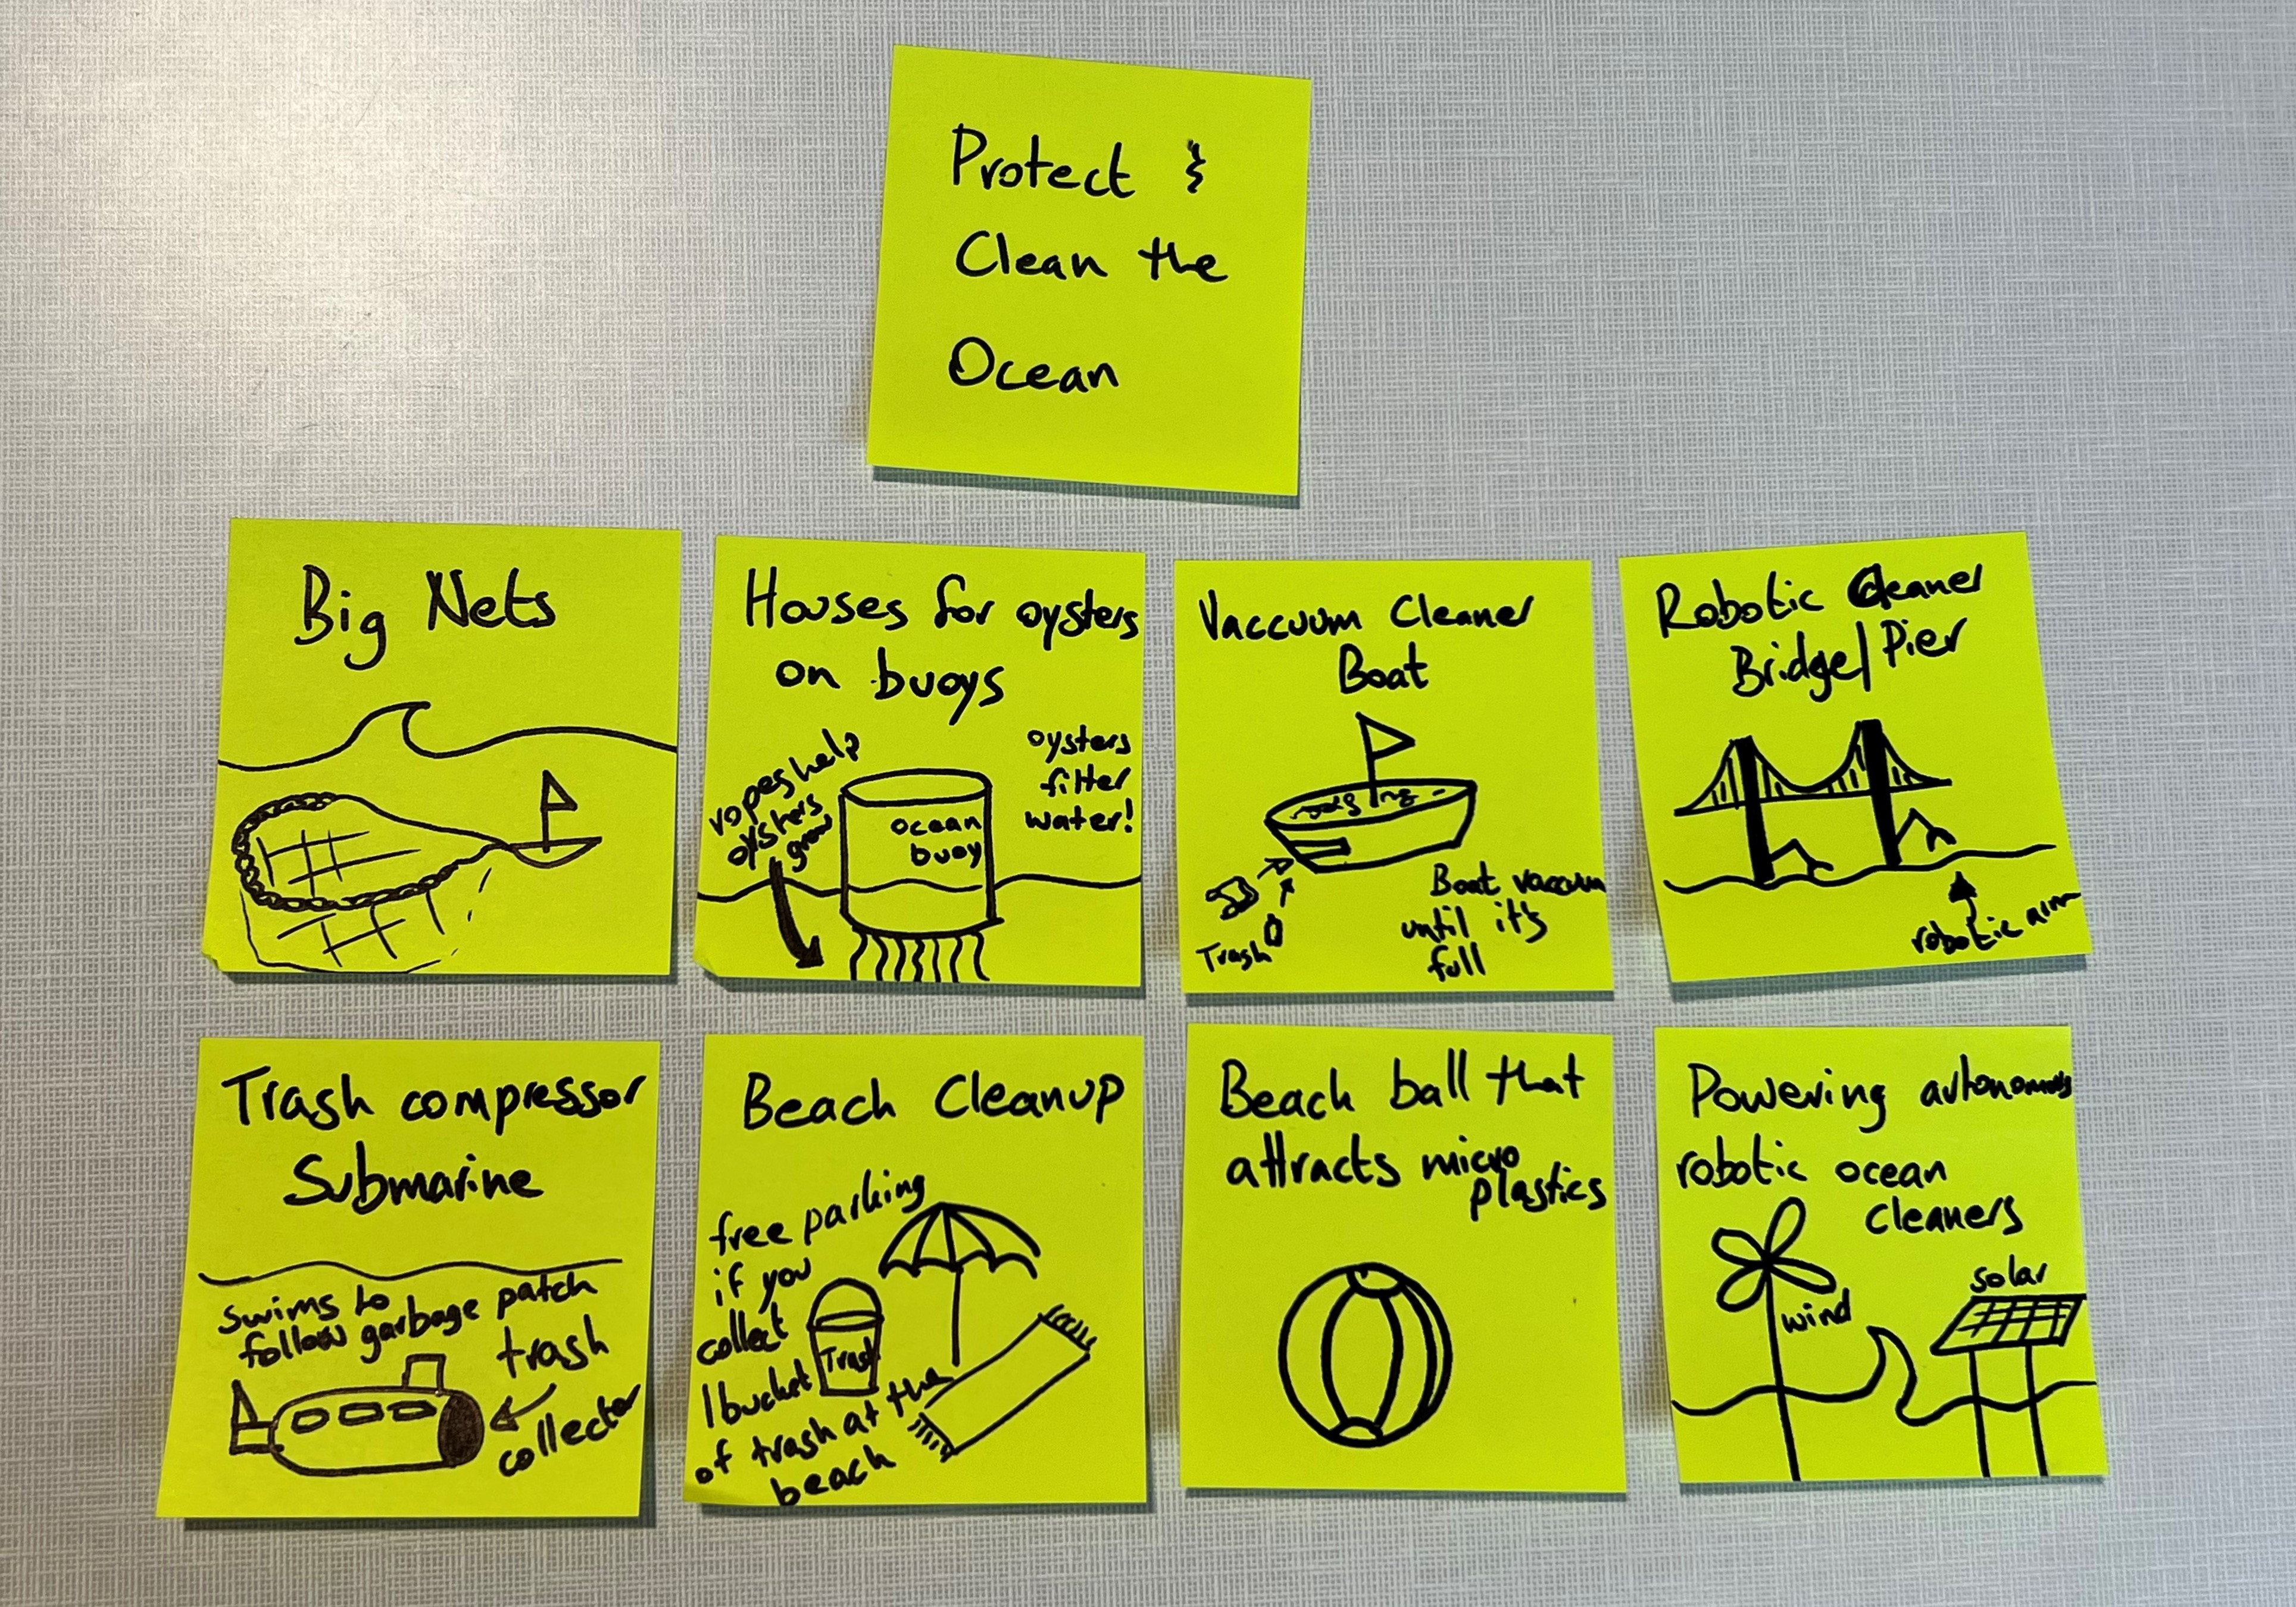 Protect &
Clean the
Ocean
Big Nets
Houses for oysters
on buoys
ropes help
oysters
grow
oysters
filter
water!
ocean
buoy
Vaccuum Cleaner
Boat
Trash
Boat vacuum
until it's
full
Robotic Cleaner
Bridge/Pier
robotic arm
Trash compressor
Submarine
swims to
follow garbage patch
trash
collector
Beach Cleanup
free parking
if you
collect
1 bucket
of trash at the
beach
Trash
Beach ball that
attracts micro
plastics
Powering autonomous
robotic ocean
cleaners
wind
solar